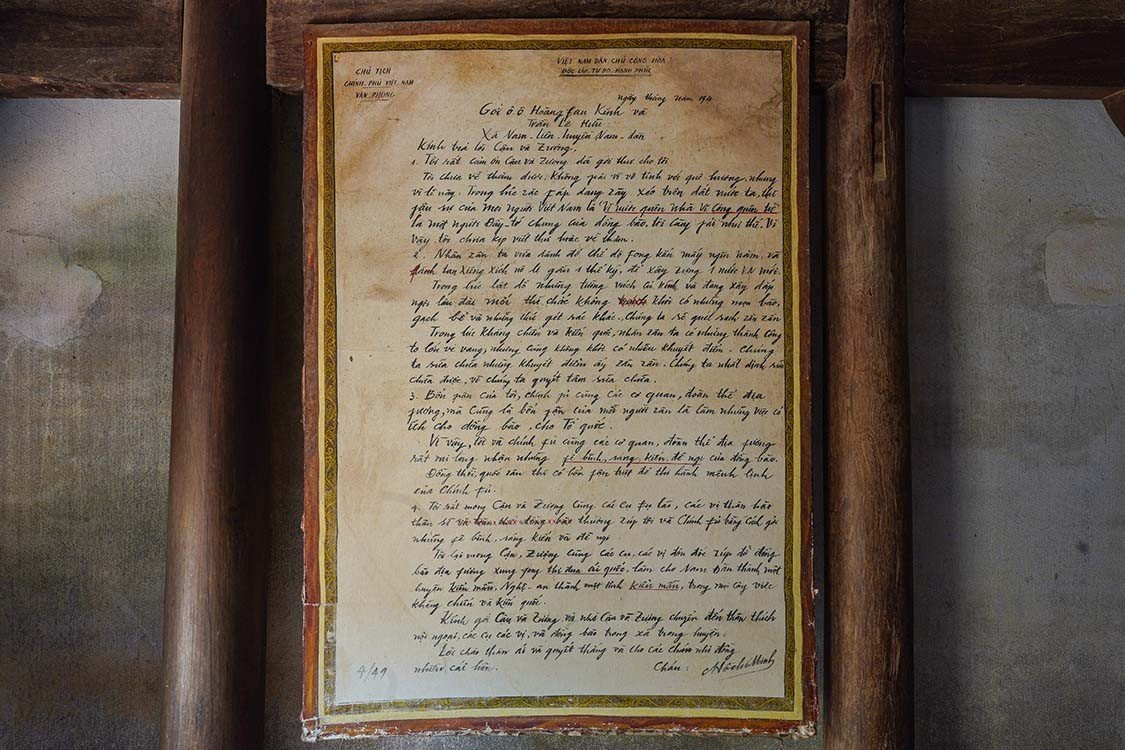 CHỦ TỊCH
CHINH PHỦ VIỆT NAM
VĂN PHÒNG
VIỆT NAM DÂN CHỦ CỘNG HÒA
ĐỘC LẬP, TỰ DO, HẠNH PHÚC
ngày tháng năm 194
Gởi ô ô Hoàng fan Kính và
Trần Lê Hữu
Xã Nam-liên, huyện Nam-đàn
Kính trả lời Cậu và Zượng.
1. Tôi rất cám ơn Cậu và Zượng đã gởi thư cho tôi
Tôi chưa về thăm được, không fải vì vô tình với quê hương, nhưng
vì lẽ này: Trong lúc zặc fáp đang zày xéo trên đất nước ta, thì
fận sự của mỗi người Việt Nam là Vì nước quên nhà Vì công quên tư
là một người Đầy tớ chung của đồng bào, tôi càng fải như thế. Vì
vậy tôi chưa kịp viết thư hoặc về thăm.
2. Nhân zân ta vừa đánh đổ chế độ fong kiến mấy ngìn năm, và
đánh tan xiềng xích nô lệ gần 1 thế kỷ, để xây zựng 1 nước V.N mới.
Trong lúc lật đổ những tường vách cũ kính và đang xây đắp
ngôi lâu đài mới thì chắc không khỏi có những mọn bào,
gạch bể và những thứ gét rác khác. Chúng ta sẽ quét sạch zần zần
Trong lúc kháng chiến và kiến quốc, nhân zân ta có những thành công
to lớn vẻ vang, nhưng cũng không khỏi có nhiều khuyết điểm. Chúng
ta sửa chữa những khuyết điểm ấy zần zần. Chúng ta nhất định sửa
chữa được, vì chúng ta quyết tâm sửa chữa.
3. Bổn fận của tôi, chính fủ cùng các cơ quan, đoàn thể địa
fương, mà cũng là bổn fận của mỗi người zân là làm những việc có
ích cho đồng bào, cho Tổ quốc.
Vì vậy, tôi và chính fủ cùng các cơ quan, đoàn thể địa fương
rất vui lòng nhận những fê bình, sáng kiến, đề ngị của đồng bào.
Đồng thời, quốc zân thì có bổn fận triệt để thi hành mệnh lịnh
của Chính fủ.
4. Tôi rất mong Cậu và Zượng cùng các cụ fụ lão, các vị thân hào
thân sĩ và toàn thể đồng bào thường zúp tôi và Chính fủ bằng cách gởi
những fê bình, sáng kiến và đề ngị.
Tôi lại mong Cậu, Zượng cùng các cụ, các vị đôn đốc zúp đỡ đồng
bào địa fương xung fong thi đua ái quốc, làm cho Nam Đàn thành một
huyện kiểu mẫu, Nghệ-an thành một tỉnh kiểu mẫu, trong mọi công việc
kháng chiến và kiến quốc.
Kính gởi Cậu và Zượng, và nhờ Cậu và Zượng chuyển đến thân thích
nội ngoại, các cụ các vị, và đồng bào trong xã trong huyện.
Lời chào thân ái và quyết thắng và cho các cháu nhi đồng
nhiều cái hôn.
Cháu: Hồ Chí Minh
4/49